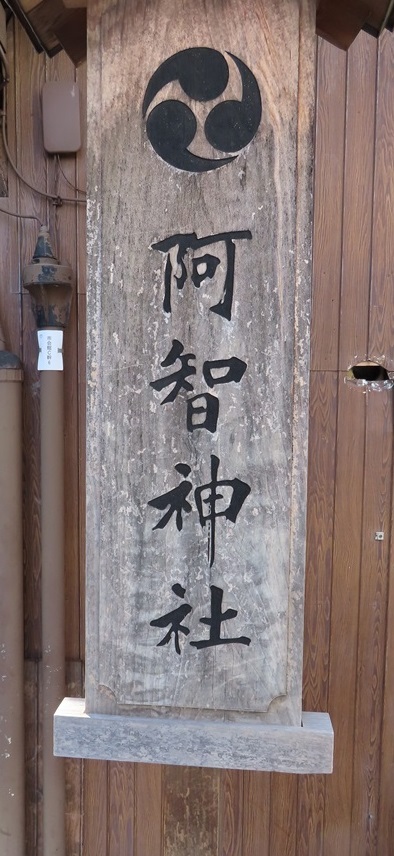 阿智神社